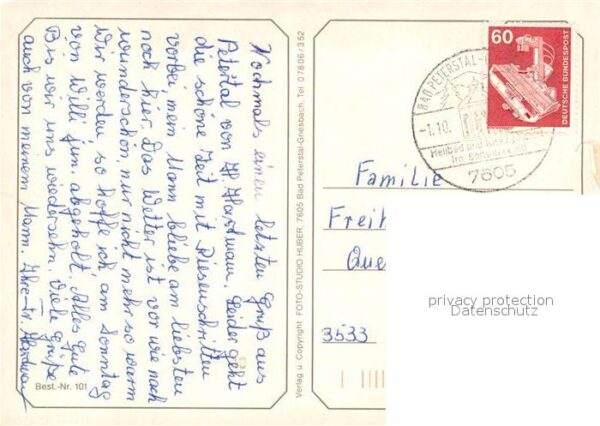 Nochmals einen letzten Gruß aus
Peterstal von Hartmann. Leider geht
die schöne Zeit mit Riesenschritten
vorbei mein Mann bliebe am liebsten
noch hier. Das Wetter ist vor wie nach
wunderschön nur nicht mehr so warm
Wir werden so hoffe ich am Sonntag
von Willi jun. abgeholt. Alles gute
Bis wir uns wiedersehn. Viele Grüße
auch von meinem Mann. Ihre Fr.
Best.-Nr. 101
Verlag u. Copyright FOTO-STUDIO HUBER, 7605 Bad Peterstal-Griesbach, Tel. 07806/352
BAD PETERSTAL-
-1.10.
Heilbad und
im
7605
60
DEUTSCHE BUNDESPOST
Familie
Freih
Que
3533
privacy protection
Datenschutz